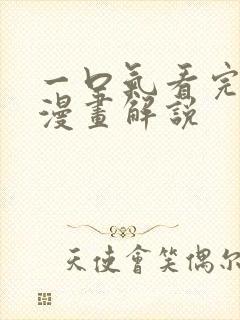 一口氣看完
漫畫解說
天使會笑偶尔